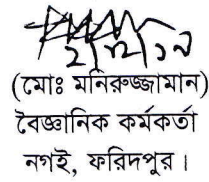 (মোঃ মনিরুজ্জামান)
বৈজ্ঞানিক কর্মকর্তা
নগই, ফরিদপুর।